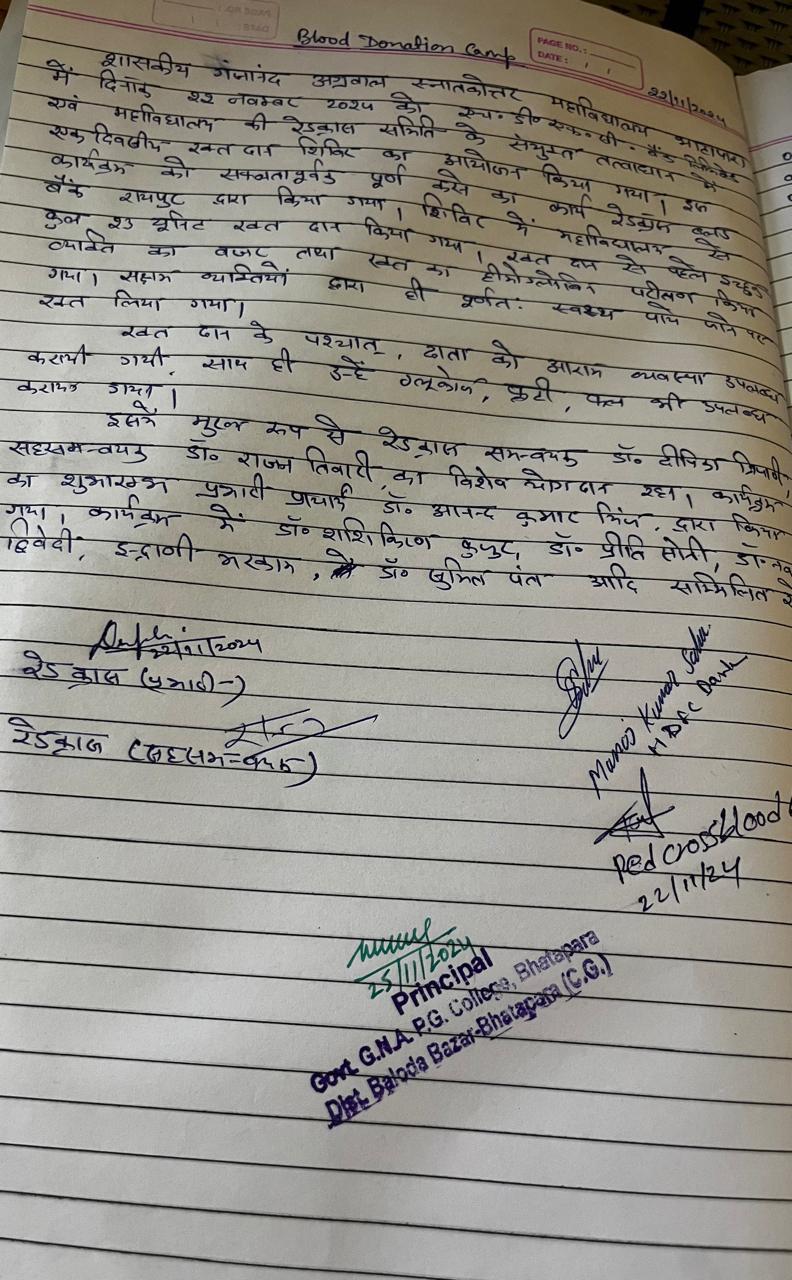 Blood Donation Camp
PAGE NO.:
DATE: / /
22/11/2024
शासकीय गजानंद अग्रवाल स्नातकोत्तर महाविद्यालय भाटापारा
में दिनाँक 22 नवम्बर 2024 को एच. डी. एफ. सी. बैंक लिमिटेड
एवं महाविद्यालय की रेडक्रास समिति के संयुक्त तत्वाधान में
एक दिवसीय रक्त दान शिविर का आयोजन किया गया। इस
कार्यक्रम को सफलतापूर्वक पूर्ण का कार्य रेडक्रॉस ब्लड
बैंक रायपुर द्वारा किया गया। शिविर में महाविद्यालय से
कुल 23 यूनिट रक्त दान किया गया। रक्त दान से पहले इच्छुक
व्यक्ति का वजट तथा रक्त का हीमोग्लोबिन परीक्षण किया
गया। सक्षम व्यक्तियों द्वारा ही पूर्णतः स्वस्थ्य पाये जाने पर
रक्त लिया गया।
रक्त दान के पश्चात्, दाता को आराम व्यवस्था उपलब्ध
करायी गयी, साथ ही उन्हें ग्लूकोज, फ्रूटी, फल भी उपलब्ध
कराया गया।
इसमें मुख्य रूप से रेडक्रास समन्वयक डॉ॰ दीपिका त्रिपाठी,
सहसमन्वयक डॉ॰ राजन तिवारी, का विशेष योगदान रहा। कार्यक्रम
का शुभारम्भ प्रभारी प्राचार्य डॉ॰ आनन्द कुमार द्वारा किया
गया। कार्यक्रम में डॉ॰ शशि किरण कुजुर, डॉ॰ प्रीति सोनी, डॉ॰
द्विवेदी, इन्द्राणी मरकाम, डॉ॰ सुमित पंत आदि सम्मिलित
22/11/2024
रेडक्रास (प्रभारी)
रेडक्रास (सहसमन्वयक)
Manoj Kumar Sahu
HDFC Bank
Red cross blood
22/11/24
25/11/2024
Principal
Govt. G.N.A. P.G. College, Bhatapara
Dist. Baloda Bazar-Bhatapara (C.G.)